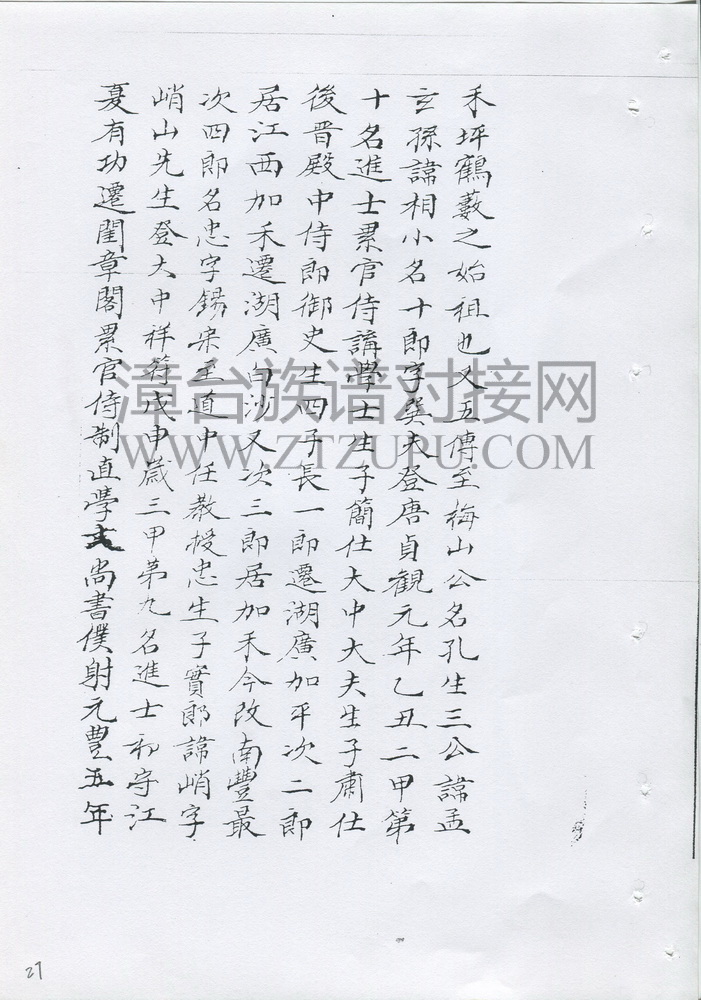 禾坪鶴藪之始祖也又五傳至梅山公名孔生三公諱孟
玄孫諱相小名十郎字巽夫登唐貞觀元年乙丑二甲第
十名進士累官侍講學士生子簡仕大中大夫生子肅仕
後晉殿中侍郎御史生四子長一郎遷湖廣加平次二郎
居江西加禾遷湖廣白沙又次三郎居加禾今改南豐最
次四郎名忠字錫宋至道中任教授忠生子實郎諱峭字
峭山先生登大中祥符戊申歲三甲第九名進士初守江
憂有功遷閣章閣累官侍制直學尚書僕射元豐五年
漳台族谱对接网
WWW.ZTZUPU.COM
27